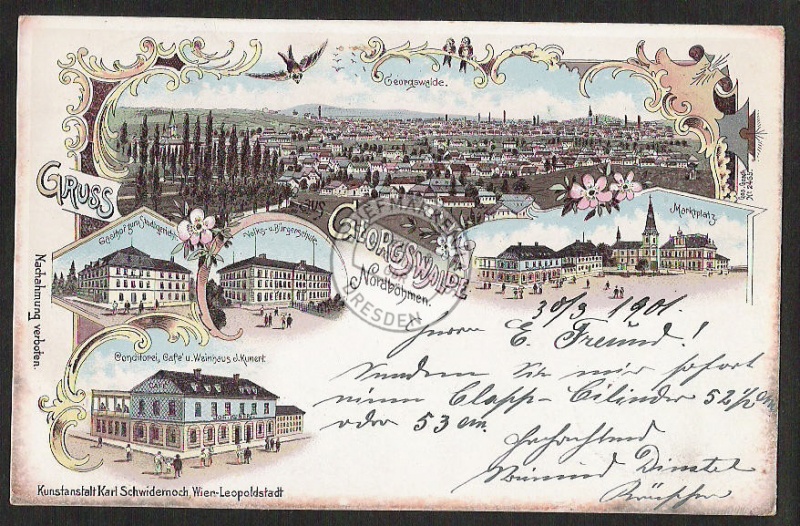 Georgswalde.
GRUSS
AUS
GEORGSWALDE
Nordböhmen.
Ges. Gesch. № 2459.
Marktplatz.
Gasthof zum Stadtgericht
Volks- u. Bürgerschule.
Nachahmung verboten.
Conditorei, Café u. Weinhaus J. Kunert
Kunstanstalt Karl Schwidernoch, Wien-Leopoldstadt
BRIEFMARKEN
DRESDEN
30/3 1901.
Herrn E. Freund!
Senden Sie mir sofort
einen Clapp-Cilinder 52 1/2 cm
oder 53 cm.
Hochachtend
Dinstel